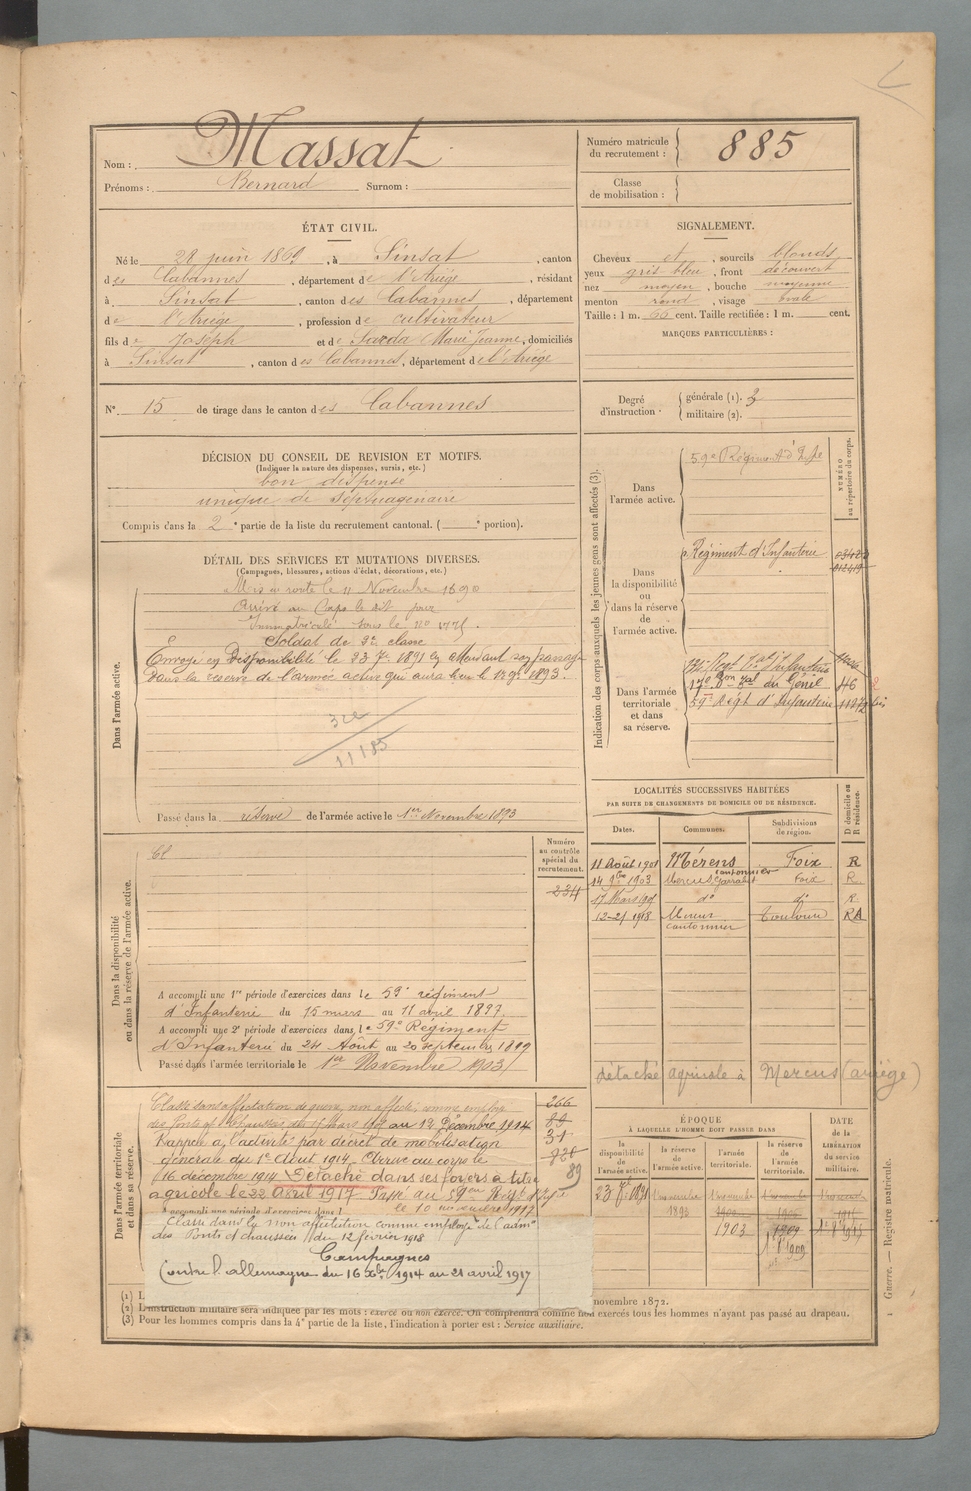 Nom : Massat
Prénoms : Bernard Surnom :
Numéro matricule du recrutement : 885
Classe de mobilisation :
ÉTAT CIVIL.
Né le 28 juin 1869, à Sinsat, canton
des Cabannes, département de l'Ariège, résidant
à Sinsat, canton des Cabannes, département
de l'Ariège, profession de cultivateur
fils de Joseph et de Sarda Marie Jeanne, domiciliés
à Sinsat, canton des Cabannes, département de l'Ariège
SIGNALEMENT.
Cheveux et, sourcils blonds
yeux gris bleu, front découvert
nez moyen, bouche moyenne
menton rond, visage ovale
Taille : 1 m. 66 cent. Taille rectifiée : 1 m. cent.
MARQUES PARTICULIÈRES :
N° 15 de tirage dans le canton des Cabannes
Degré d'instruction : générale (1). 3
militaire (2).
DÉCISION DU CONSEIL DE REVISION ET MOTIFS.
(Indiquer la nature des dispenses, sursis, etc.)
bon dispensé
unique de septuagénaire
Compris dans la 2e partie de la liste du recrutement cantonal. ( e portion).
DÉTAIL DES SERVICES ET MUTATIONS DIVERSES.
(Campagnes, blessures, actions d'éclat, décorations, etc.)
Dans l'armée active.
Mis en route le 11 Novembre 1890
Arrivé au Corps le dit jour
Immatriculé sous le no
Soldat de 2e classe
Envoyé en Disponibilité le 23 7bre 1891 en attendant son passage
dans la réserve de l'armée active qui aura lieu le 1er 9bre 1893.
11185
Passé dans la réserve de l'armée active le 1er Novembre 1893
Indication des corps auxquels les jeunes gens sont affectés (3).
NUMÉRO au répertoire du corps.
Dans l'armée active.
59e Régiment d'Infie
Dans la disponibilité ou dans la réserve de l'armée active.
Régiment d'Infanterie
Dans l'armée territoriale et dans sa réserve.
17e Bon Tal du Génie 46
59e Régt d'Infanterie
LOCALITÉS SUCCESSIVES HABITÉES
PAR SUITE DE CHANGEMENTS DE DOMICILE OU DE RÉSIDENCE.
Dates. Communes. Subdivisions de région. D domicile ou R résidence.
11 Août 1901 Mérens Foix R
14 9bre 1903 Mercus Garrabet cantonnier Foix R
17 Mars 1905 do do R
12-21 1918 Mercus cantonnier Toulouse R
détaché agricole à Mercus (ariège)
Dans la disponibilité ou dans la réserve de l'armée active.
Numéro au contrôle spécial du recrutement.
234
A accompli une 1re période d'exercices dans le 59e régiment
d'Infanterie du 15 mars au 11 avril 1897.
A accompli une 2e période d'exercices dans le 59e Régiment
d'Infanterie du 24 Août au 20 septembre 1899
Passé dans l'armée territoriale le 1er Novembre 1903
Dans l'armée territoriale et dans sa réserve.
Classé sans affectation de guerre, non affecté, comme employé
des Ponts et Chaussées, du 17 Mars 1905 au 12 Décembre 1914
Rappelé à l'activité par décret de mobilisation
générale du 1er Août 1914. Arrivé au corps le
16 décembre 1914 Détaché dans ses foyers à titre
agricole le 22 avril 1917. Passé au 59e Régt d'Infie
le 10 1917
Classé dans la non affectation comme employé de l'admon
des Ponts et chaussées du 12 février 1918
Campagnes
Contre l'allemagne du 16 Xbre 1914 au 21 avril 1917
266
89
ÉPOQUE
À LAQUELLE L'HOMME DOIT PASSER DANS
la disponibilité de l'armée active.
la réserve de l'armée active.
l'armée territoriale.
la réserve de l'armée territoriale.
DATE de la LIBÉRATION du service militaire.
23 7bre 1891
1er novembre 1893
1er novembre 1903
1909
(1) L
novembre 1872.
(2) L'instruction militaire sera indiquée par les mots : exercé ou non exercé. On comprendra comme non exercés tous les hommes n'ayant pas passé au drapeau.
(3) Pour les hommes compris dans la 4e partie de la liste, l'indication à porter est : Service auxiliaire.
Guerre. — Registre matricule.